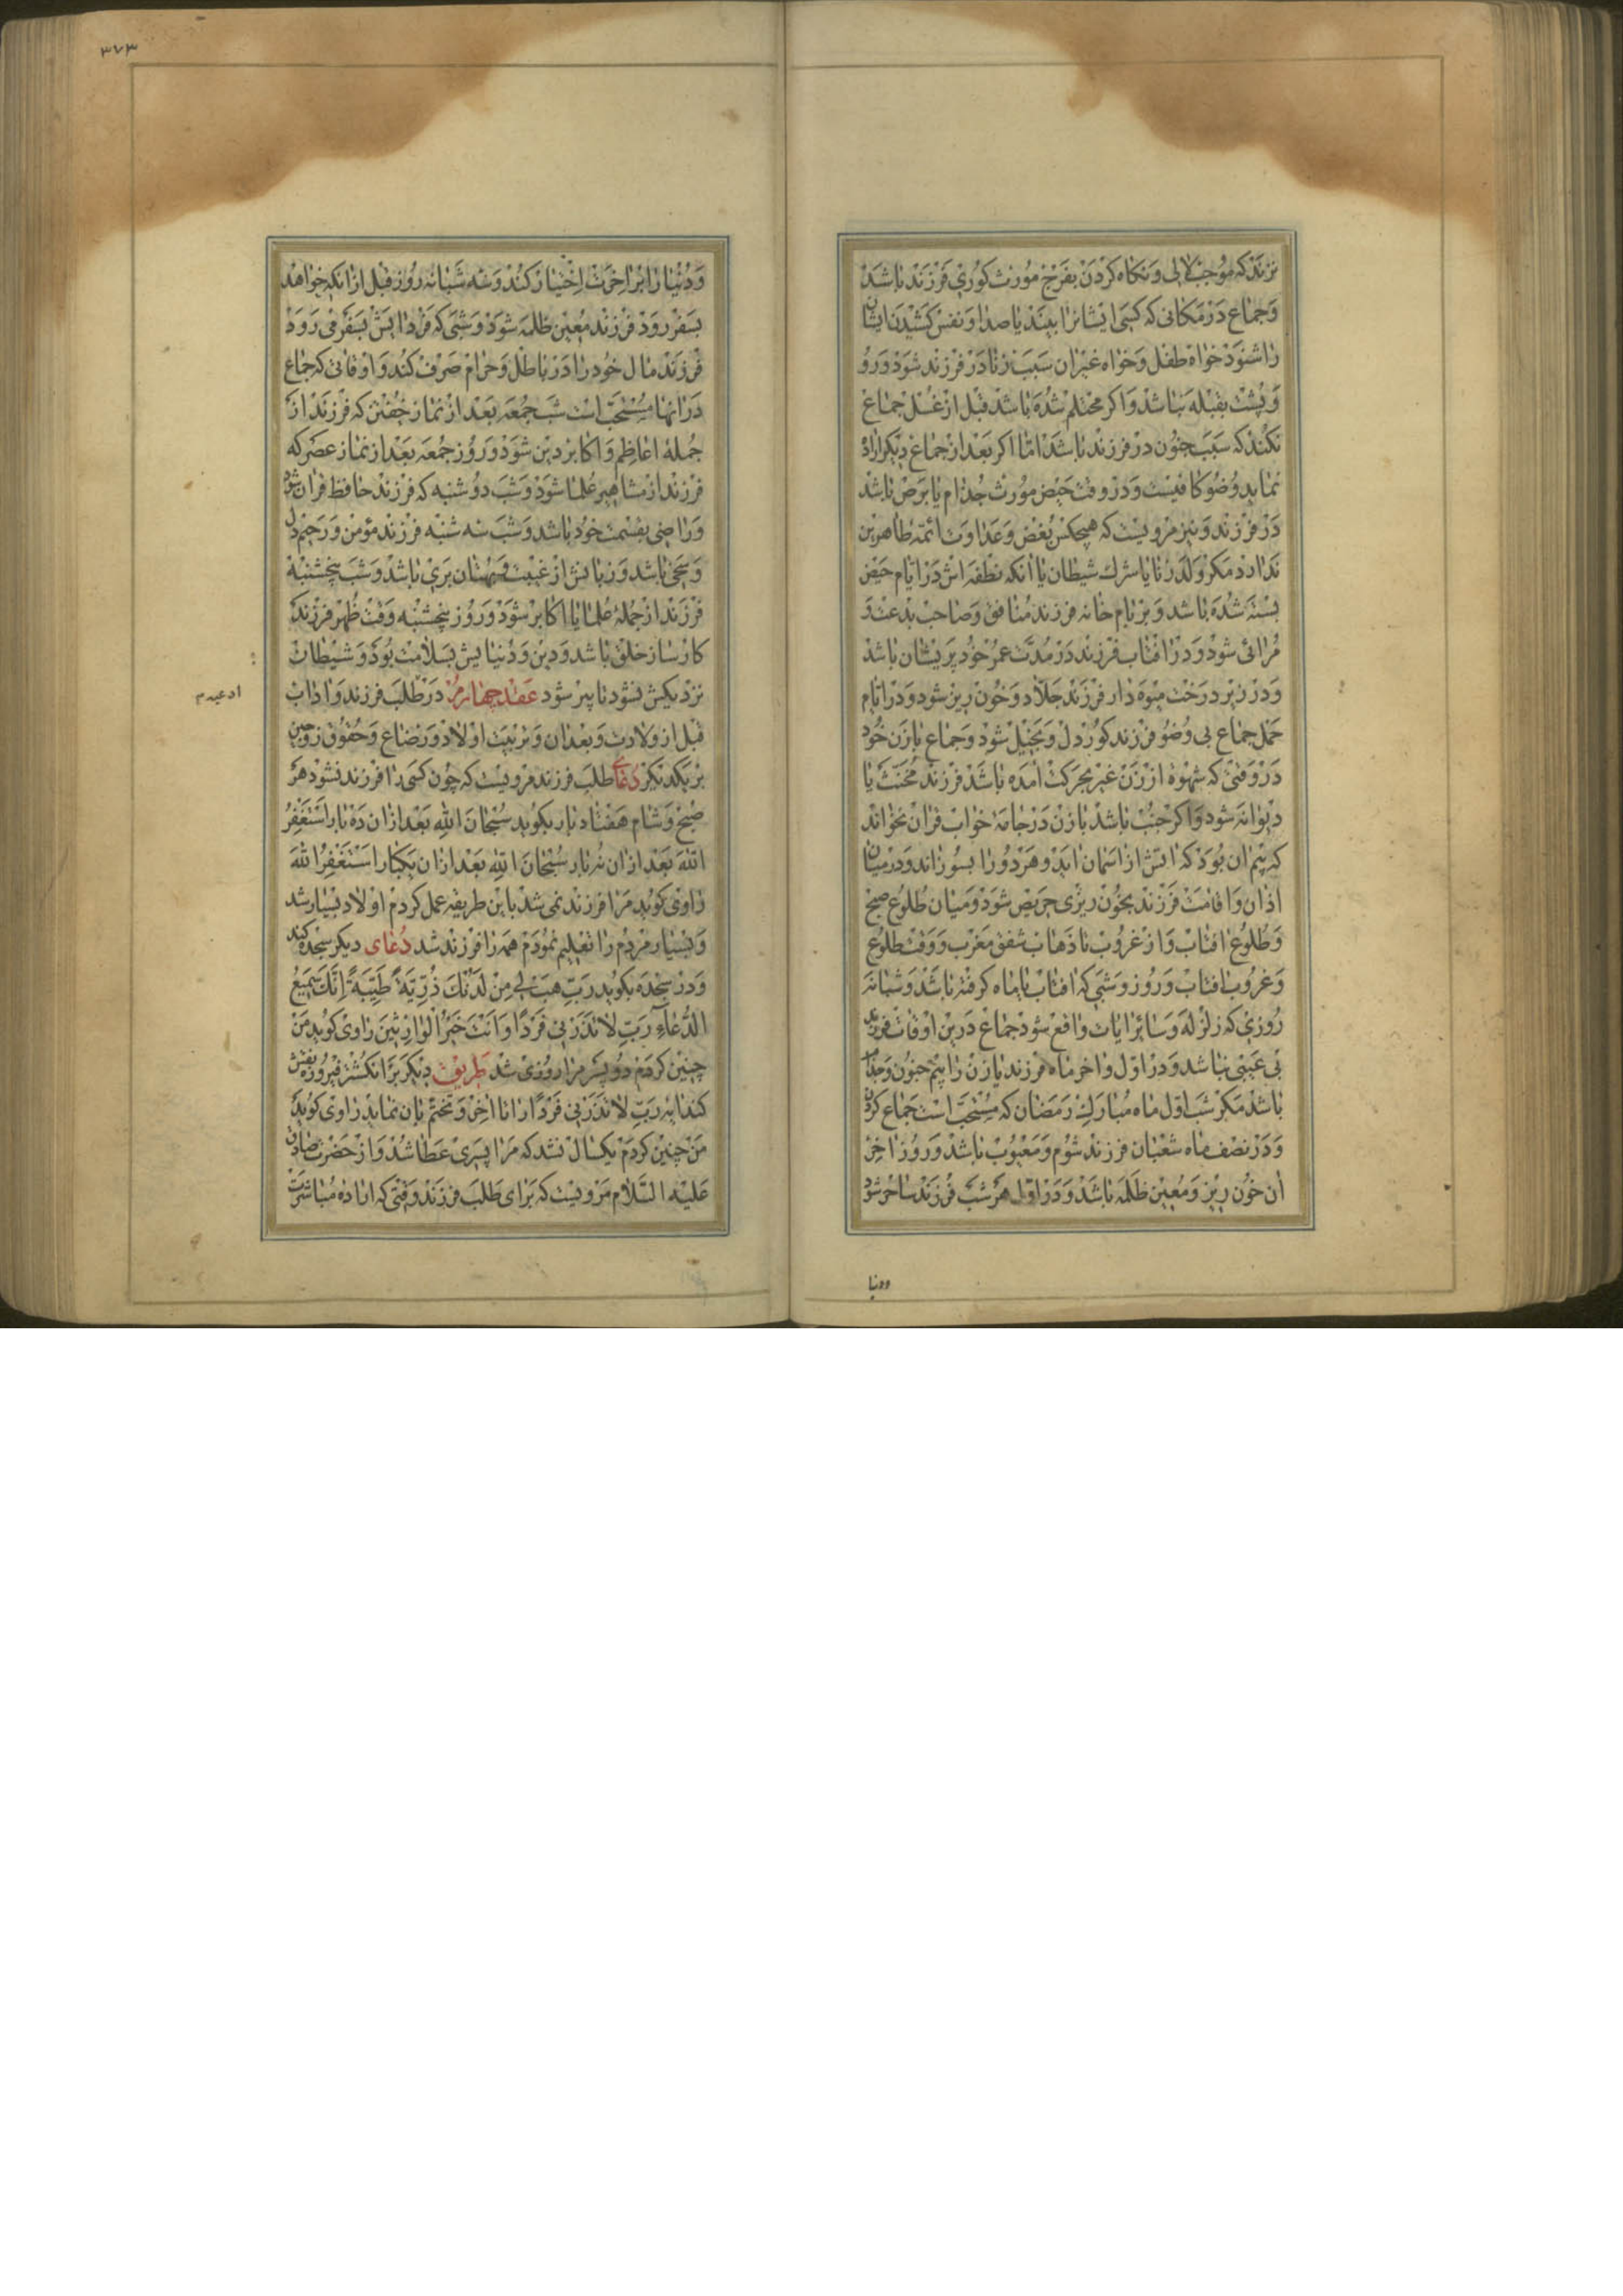 نزند که موجب لالی و نکاه کردن بفرج مورث کوری فرزند باشد
و جماع در مکانی که کسی ایشانرا ببیند یا صدا و نفس کشیدن ایشان
را شنود خواه طفل و خواه غیر ان سبب زنا در فرزند شود و رو
و پشت بقبله نباشد و اکر محتلم شده باشد قبل از غسل جماع
نکند که سبب جنون در فرزند باشد اما اکر بعد از جماع دیکر اراده
نماید وضو کافیست و در وقت حیض مورث جذام یا برص باشد
در فرزند و نیز مرویست که هیچکس بغض و عداوت ائمه طاهرین
ندارد مکر ولد زنا یا شرك شیطان یا انکه نطفه اش در ایام حیض
بسته شده باشد و بر بام خانه فرزند منافق و صاحب بدعت و
مرائی شود و در افتاب فرزند در مدت عمر خود پریشان باشد
و در زیر درخت میوه دار فرزند جلاد و خون ریز شود و در ایام
حمل جماع بی وضو فرزند کور دل و بخیل شود و جماع با زن خود
در وقتی که شهوة از زن غیر بحرکت امده باشد فرزند مخنث یا
دیوانه شود و اکر جنب باشد با زن در جامه خواب قران نخواند
که بیم ان بود که اتش از اسمان اید و هر دو را بسوزاند و در میان
اذان و اقامت فرزند بخون ریزی حریص شود و میان طلوع صبح
و طلوع افتاب و از غروب تا ذهاب شفق مغرب و وقت طلوع
و غروب افتاب و روز و شبی که افتاب یا ماه کرفته باشد و شبانه
روزی که زلزله و سائر ایات واقع شود جماع درین اوقات فرزند
بی عیبی نباشد و در اول و اخر ماه فرزند یا زن را بیم جنون و جذام
باشد مکر شب اول ماه مبارك رمضان که مستحب است جماع کردن
و در نصف ماه شعبان فرزند شوم و معیوب باشد و روز اخر
ان خون ریز و معین ظلمه باشد و در اول هر شب فرزند ساحر شود
ودنیا
۳۷۳
و دنیا را بر اخرت اختیار کند و سه شبانه روز قبل از انکه خواهد
بسفر رود فرزند معین ظلمه شود و شبی که فردایش بسفر می رود
فرزند مال خود را در باطل و حرام صرف کند و اوقاتی که جماع
در انها مستحب است شب جمعه بعد از نماز خفتن که فرزند از
جمله اعاظم و اکابر دین شود و روز جمعه بعد از نماز عصر که
فرزند از مشاهیر علما شود و شب دوشنبه که فرزند حافظ قران شود
و راضی بقسمت خود باشد و شب سه شنبه فرزند مؤمن و رحیم دل
و سخی باشد و زبانش از غیبت و بهتان بری باشد و شب پنجشنبه
فرزند از جمله علما یا اکابر شود و روز پنجشنبه وقت ظهر فرزند
کارساز خلق باشد و دین و دنیایش بسلامت بود و شیطان
نزدیکش نشود تا پیر شود عقد چهارم در طلب فرزند و اداب
ادعیه م
قبل از ولادت و بعد ان و تربیت اولاد و رضاع و حقوق زوجین
بر یکدیکر دعای طلب فرزند مرویست که چون کسی را فرزند نشود هر
صبح و شام هفتاد بار بکوید سبحان الله بعد از ان ده بار استغفر
الله بعد از ان نه بار سبحان الله بعد از ان یکبار استغفر الله
راوی کوید مرا فرزند نمی شد باین طریقه عمل کردم اولاد بسیار شد
و بسیار مردم را تعلیم نمودم همه را فرزند شد دعای دیکر سجده کند
و در سجده بکوید رب هب لی من لدنك ذریة طیبة انك سمیع
الدعاء رب لا تذرنی فردا و انت خیر الوارثین راوی کوید من
چنین کردم دو پسر مرا روزی شد طریق دیکر بر انکشتر فیروزه نقش
کند ایه رب لا تذرنی فردا را تا اخر و تختم بان نماید راوی کوید
من چنین کردم یکسال نشد که مرا پسری عطا شد و از حضرت صادق
علیه السلام مرویست که برای طلب فرزند وقتی که اراده مباشرت